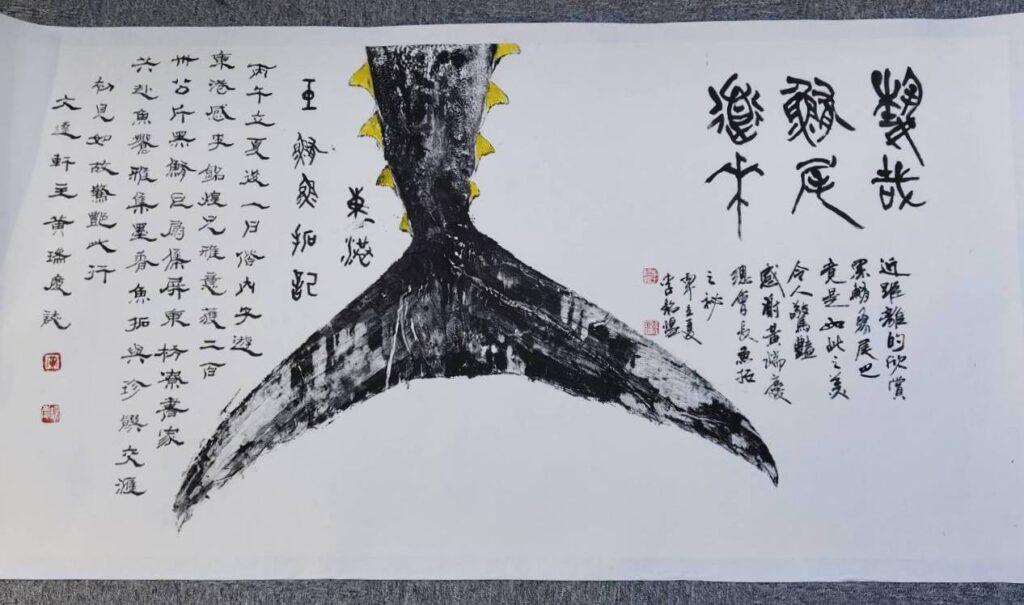 哉
尾
近距離的欣賞
黑鮪魚尾巴
竟是如此之美
令人驚豔
感謝黃瑞慶
總會長魚拓
之秘
立夏
李銘煌
東港
王鮪魚拓記
丙午立夏後一日偕內子遊
東港感李銘煌兄雅意獲二百
卅公斤黑鮪巨尾集屏東枋寮書家
共赴魚饗雅集墨香魚拓與珍饌交滙
初見如故驚艷此行
文遠軒主黃瑞慶誌